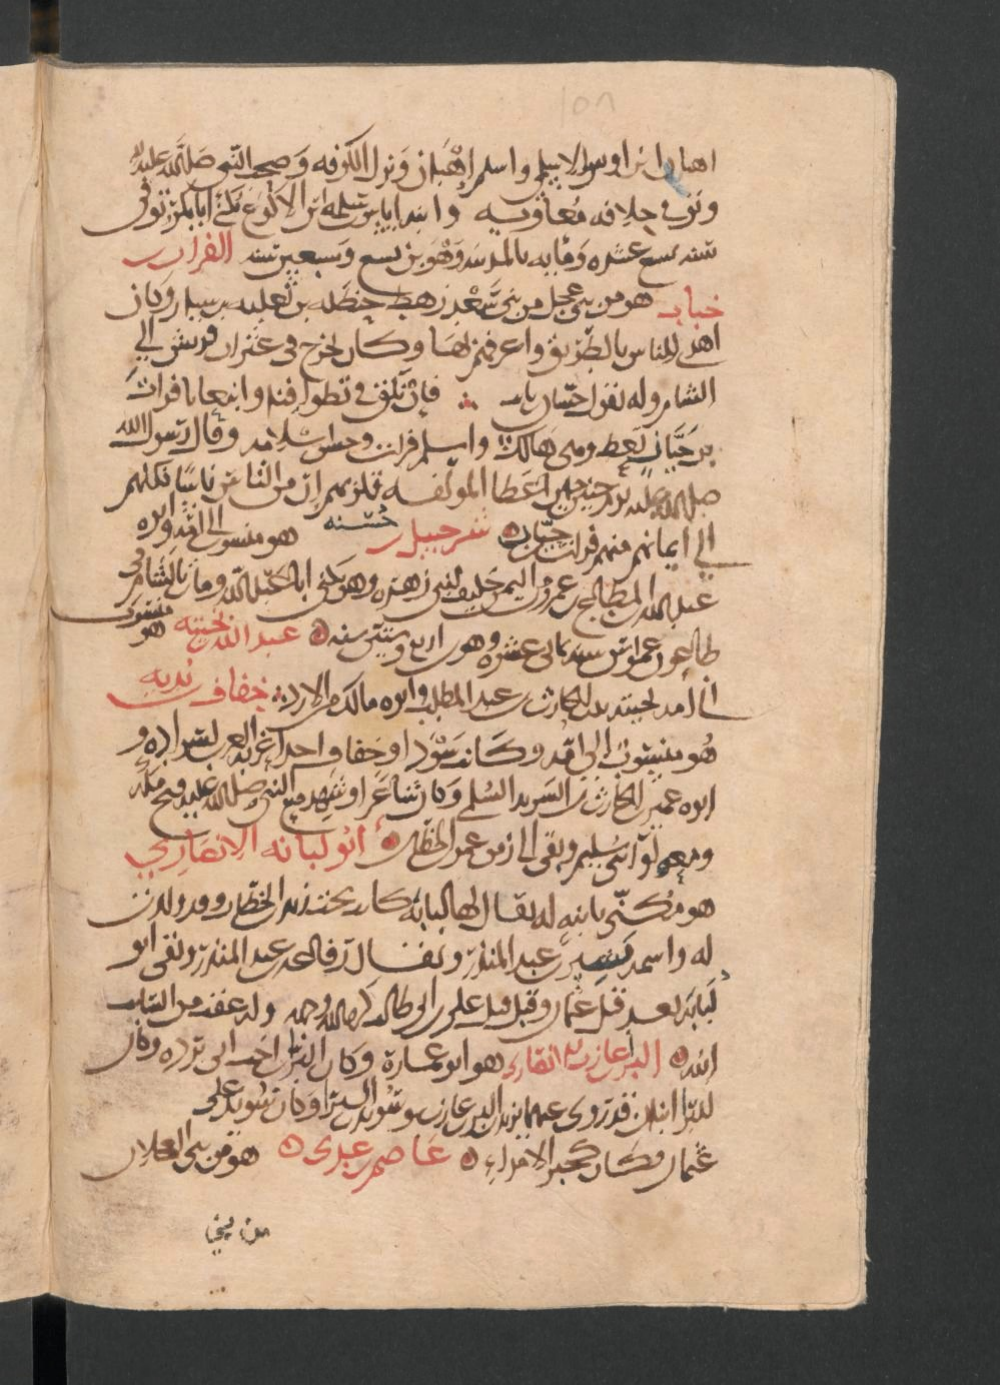 اهبان ابن اوس الاسلمي واسلم اهبان ونزل الكوفه وصحب النبي صلى الله عليه
وتوفي في خلافه معاويه وابنه اياس بن سلمه ابن الاكوع يكنى ابا بكر توفي
سنه تسع عشره ومايه بالمدينه وهو بن سبع وسبعين سنه الفرات بن
حيان هو من بني عجل من بني سعد رهط حنظله بن ثعلبه بن سيار وكان
اهدى الناس بالطريق واعرفهم بها وكان يخرج في عيران قريش الى
الشام وله يقول حسان بن ثابت فان نلق في تطوافنا وابتغاينا فرات
بن حيان يكن رهن هالك واسلم فرات وحسن اسلامه وقال رسول الله
صلى الله عليه يوم حنين حين اعطا المولفه قلوبهم ان من الناس ناسا نكلهم
الى ايمانهم منهم فرات بن حيان شرحبيل بن حسنه هو منسوب الى امه وابوه
عبد الله بن المطاع بن عمرو من اليمن حليف لبني زهره وهو يكنى ابا عبد الله ومات بالشام في
طاعون عمواس سنه ثماني عشره وهو بن اربع وستين سنه عبد الله بن بحينه هو منسوب
الى امه بحينه بنت الحارث بن عبد المطلب وابوه مالك من الازد خفاف بن ندبه
هو منسوب الى امه وكانت سودا وخفاف احد اغربه العرب لسواده و
ابوه عمير بن الحارث بن الشريد السلمي وكان شاعرا وشهد مع النبي صلى الله عليه فتح مكه
ومعه لوا بني سليم وبقي الى زمن عمر بن الخطاب ابو لبابه الانصاري
هو مكنى بابنه له يقال لها لبابه كانت تحت زيد بن الخطاب وقد ولدت
له واسمه بشير بن عبد المنذر ويقال رفاعه بن عبد المنذر وتوفي ابو
لبابه بعد قتل عثمان وقبل قتل علي بن ابي طالب كرم الله وجهه وله عقب من السايب
ابنه البرا بن عازب الانصاري هو ابو عماره وكان البرا بن اخت ابي برده وكان
للبرا ابنان قد روي عنهما يزيد بن البرا بن عازب وسويد بن البرا وكان سويد على
عمان وكان كخير الامراء عاصم بن عدي هو من بني العجلان
من بني